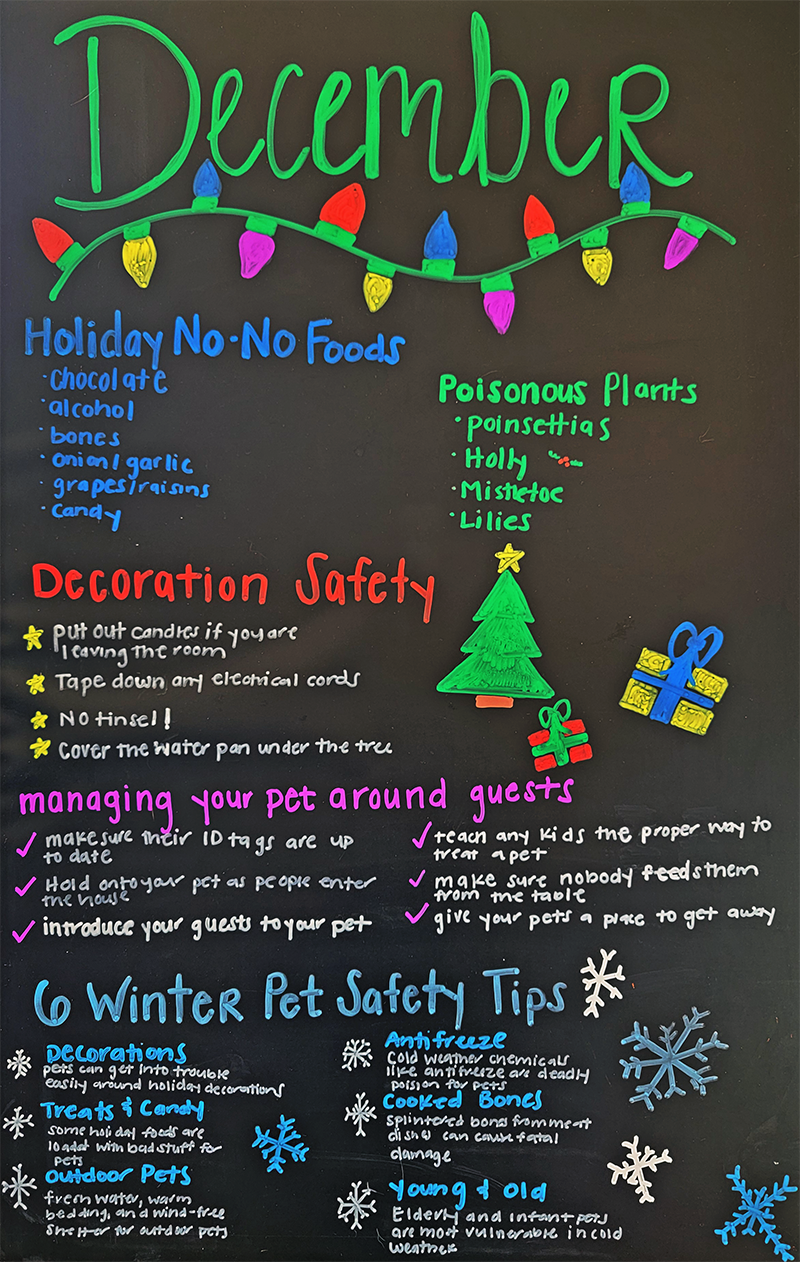 December
Holiday No-No Foods
·chocolate
·alcohol
·bones
·onion/garlic
·grapes/raisins
·candy
Poisonous Plants
·poinsettias
·Holly
·Mistletoe
·Lilies
Decoration Safety
put out candles if you are
leaving the room
Tape down any electrical cords
No tinsel!
cover the water pan under the tree
managing your pet around guests
make sure their ID tags are up
to date
Hold onto your pet as people enter
the house
introduce your guests to your pet
teach any kids the proper way to
treat a pet
make sure nobody feeds them
from the table
give your pets a place to get away
6 Winter Pet Safety Tips
Decorations
pets can get into trouble
easily around holiday decorations
Treats & Candy
some holiday foods are
loaded with bad stuff for
pets
Outdoor Pets
fresh water, warm
bedding, and wind-free
shelter for outdoor pets
Antifreeze
Cold weather chemicals
like antifreeze are deadly
poision for pets
Cooked Bones
splintered bones from meat
dishes can cause fatal
damage
Young & Old
Elderly and infant pets
are most vulnerable in cold
weather